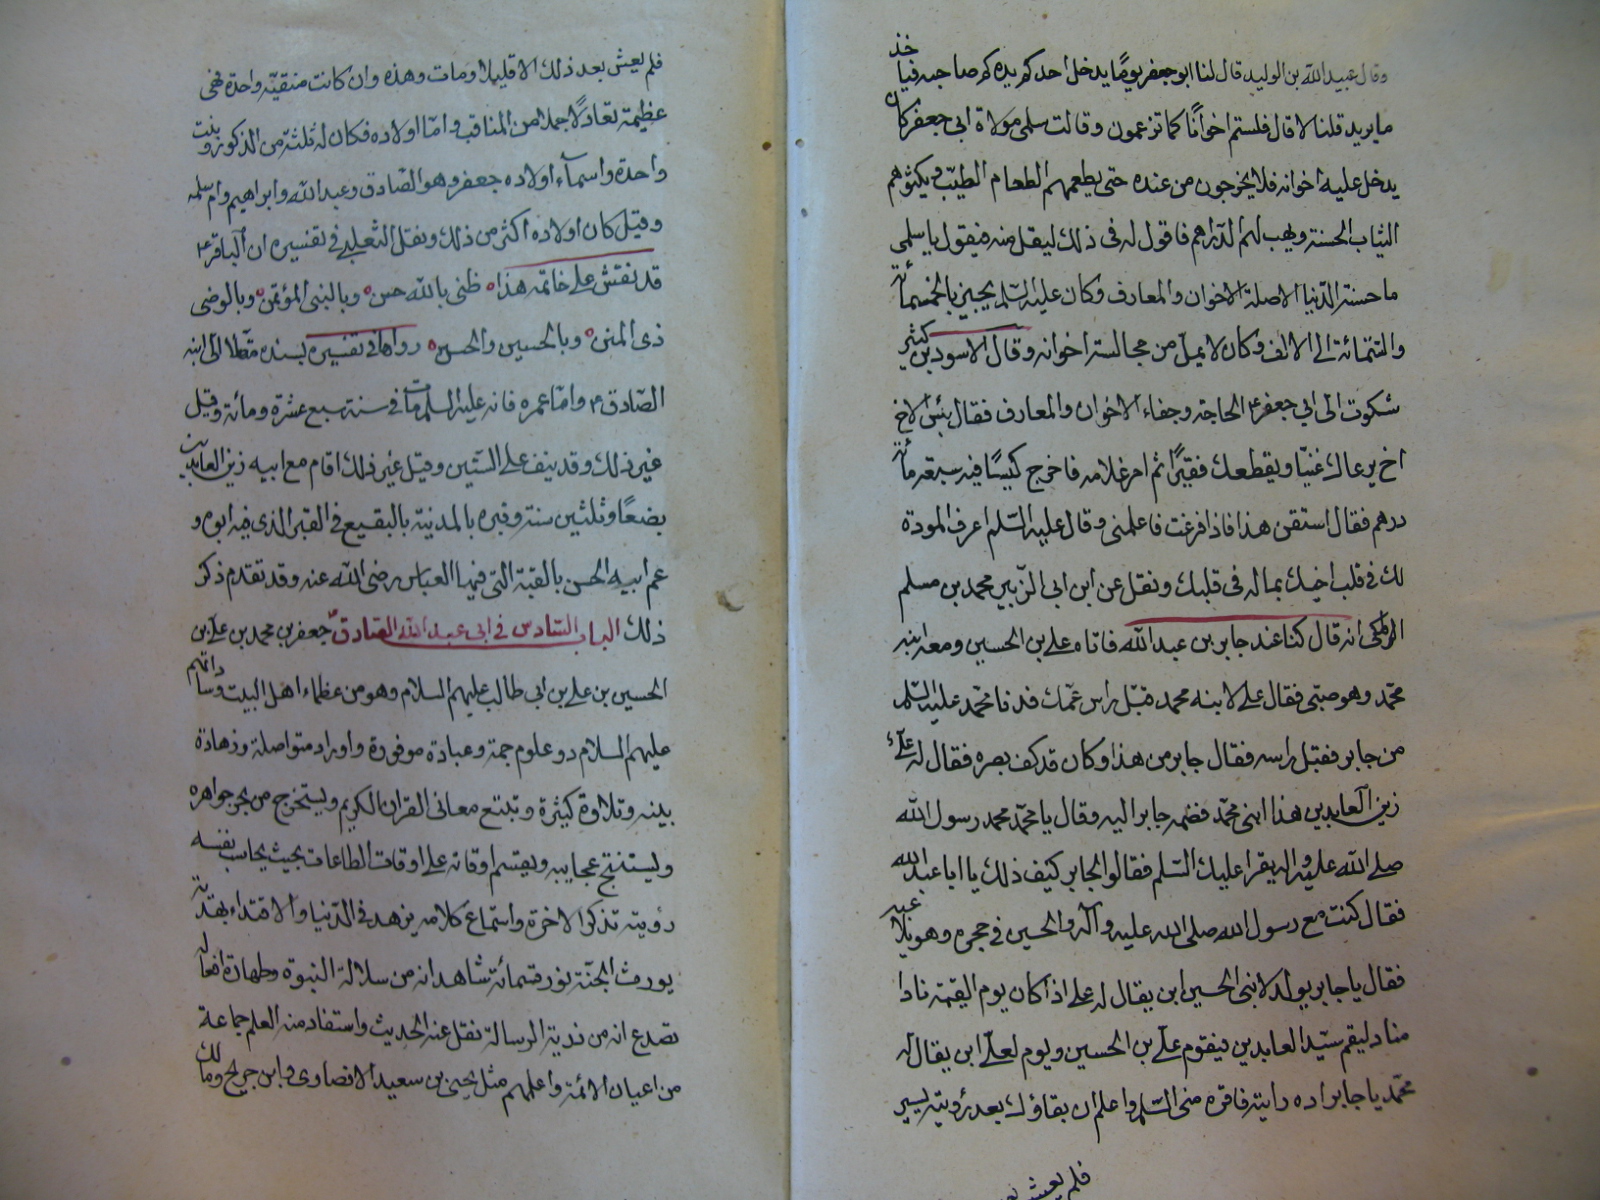 وقال عبيد الله بن الوليد قال لنا ابو جعفر يومًا يدخل احدكم يده كم صاحبه فياخذ
ما يريد قلنا لا قال فلستم اخوانًا كما تزعمون وقالت سلمى مولاة ابى جعفر كان
يدخل عليه اخوانه فلا يخرجون من عنده حتى يطعمهم الطعام الطيّب ويكسوهم
الثياب الحسنة ويهب لهم الدراهم فاقول له فى ذلك ليقل منه فيقول يا سلمى
ما حسنة الدّنيا الا صلة الاخوان والمعارف وكان عليه السّلم يجيز بالخمسمائة
والستمائة الى الالف وكان لا يملّ من مجالسة اخوانه وقال الاسود بن كثير
شكوت الى ابى جعفر ع الحاجة وجفاء الاخوان والمعارف فقال بئس الاخ
اخ يرعاك غنيّا ويقطعك فقيرًا ثم امر غلامه فاخرج كيسًا فيه سبعة مائة
درهم فقال استنفق هذا فاذا فرغت فاعلمنى وقال عليه السّلم اعرف المودة
لك فى قلب اخيك بما له فى قلبك ونقل عن ابن ابى الزّبير محمد بن مسلم
المكى انه قال كنا عند جابر بن عبد الله فاتاه على بن الحسين ومعه ابنه
محمّد وهو صبّى فقال على لابنه محمد قبّل راس عمّك فدنا محمّد عليه السّلم
من جابر فقبّل راسه فقال جابر من هذا وكان قد كف بصره فقال له علىّ
زين العابدين هذا ابنى محمّد فضمه جابر اليه وقال يا محمّد محمد رسول الله
صلى الله عليه واله يقرا عليك السّلم فقالوا لجابر كيف ذلك يا ابا عبد الله
فقال كنت مع رسول الله صلى الله عليه وآله والحسين فى حجره وهو يلاعبه
فقال يا جابر يولد لابنى الحسين ابن يقال له على اذا كان يوم القيمة نادا
مناد ليقم سيّد العابدين فيقوم علّى بن الحسين ويولد لعلىّ ابن يقال له
محمّد يا جابر اذا رايته فاقره منى السّلم واعلم ان بقاؤك بعد رؤيته يسير
فلم يعش
فلم يعش بعد ذلك الا قليلا ومات وهذه وان كانت منقبة واحدة فهى
عظيمة تعادل جملا من المناقب وامّا اولاده فكان له ثلثة من الذكور وبنت
واحدة واسمآء اولاده جعفر وهو الصّادق وعبد الله وابراهيم وام سلمه
وقيل كان اولاده اكثر من ذلك ونقل الثعلبى فى تفسيره ان الباقر ع
قد نقش على خاتمه هذا ظنى بالله حسن وبالنبى المؤتمن وبالوصى
ذى المنن وبالحسين والحسن رواها فى تفسيره بسنده متصلا الى ابنه
الصّادق ع وامّا عمره فانه عليه السلم مات فى سنة سبع عشرة ومائة وقيل
غير ذلك وقد ينف على الستين وقيل غير ذلك اقام مع ابيه زين العابدين
بضعًا وثلثين سنة وقبره بالمدينة بالبقيع فى القبر الذى فيه ابوه و
عم ابيه الحسن بالقبة التى فيها العباس رضى الله عنه وقد تقدم ذكر
ذلك الباب السّادس فى ابى عبد الله الصّادق جعفر بن محمد بن على بن
الحسين بن على بن ابى طالب عليهم السلام وهو من عظماء اهل البيت وساداتهم
عليهم السلام ذو علوم جمة وعبادة موفورة واوراد متواصلة وزهادة
بينه وتلاوة كثيرة وتتبع معانى القران الكريم ويستخرج من بحر جواهره
ويستنتج عجايبه ويقسم اوقاته على اوقات الطاعات بحيث يحاسب نفسه
رؤيته تذكر الاخرة واستماع كلامه يزهد فى الدّنيا والاقتداء بهديه
يورث الجنّة نور قسماته شاهد انه من سلالة النبوة وطهارة افعاله
تصدع انه من ذرية الرسالة نقل عنه الحديث واستفاد منه العلم جماعة
من اعيان الائمة واعلمهم مثل يحيى بن سعيد الانصارى وابن جريح ومالك